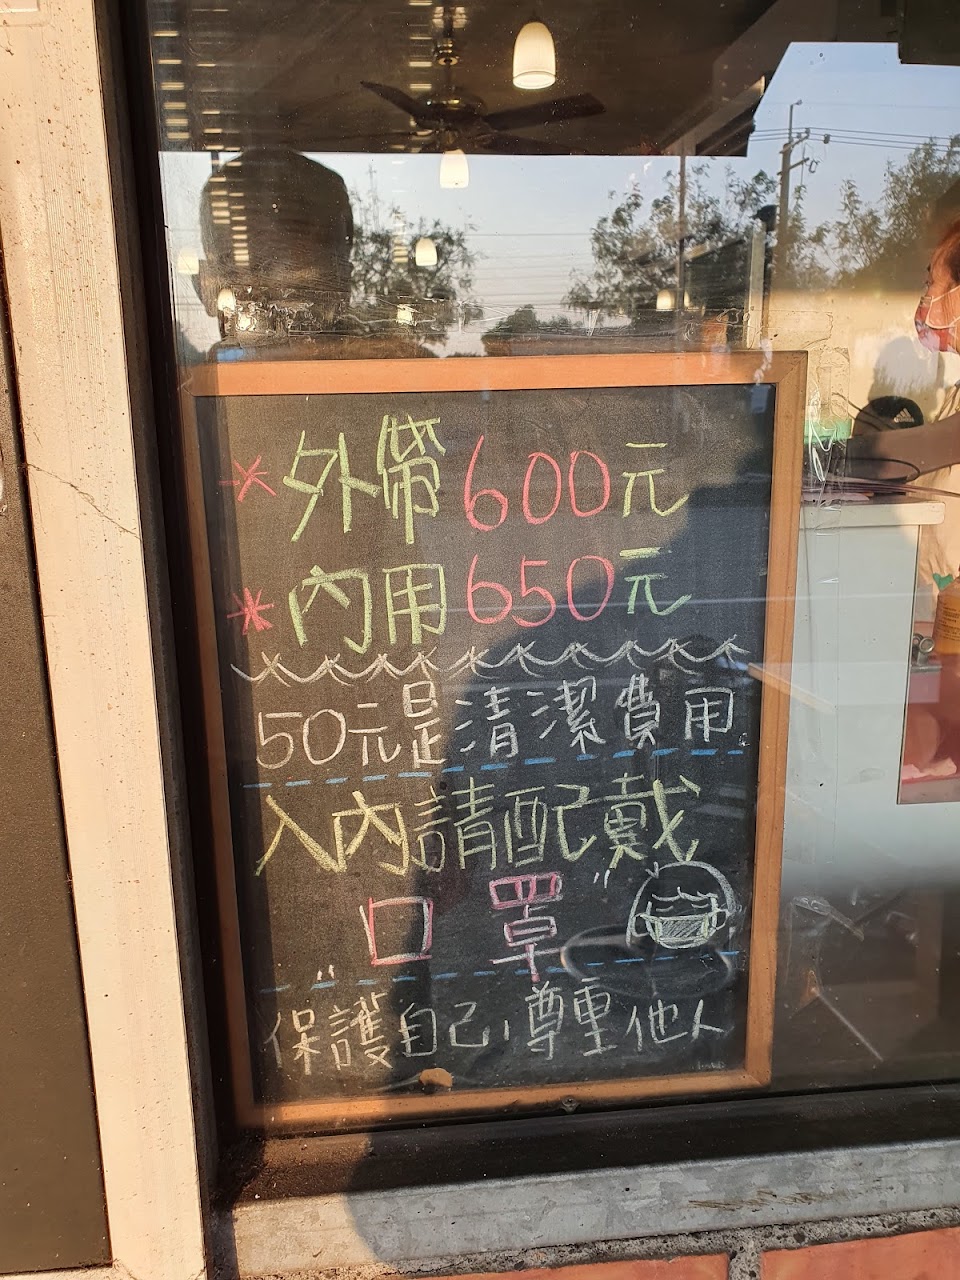 *外帶600元
*內用650元
50元是清潔費用
入內請配戴
口罩
保護自己,尊重他人
adidas